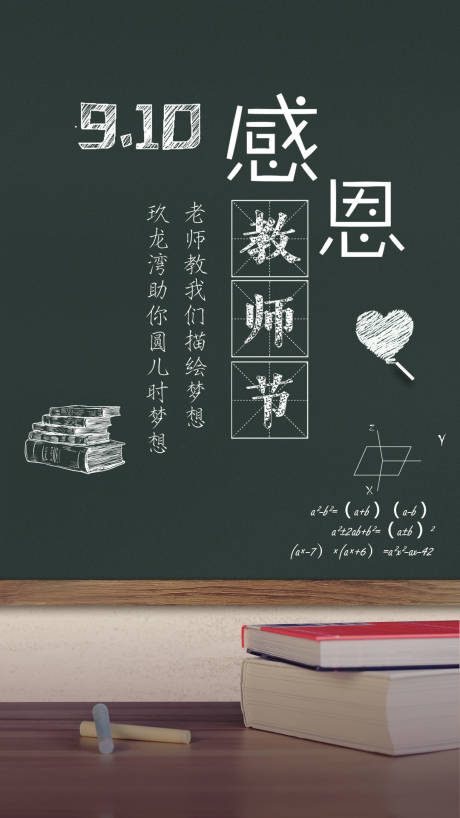 9.10
感恩
教师节
老师教我们描绘梦想
玖龙湾助你圆儿时梦想
Z
Y
X
a²-b²=(a+b)(a-b)
a²±2ab+b²=(a±b)²
(ax-7)×(ax+6)=a²x²-ax-42